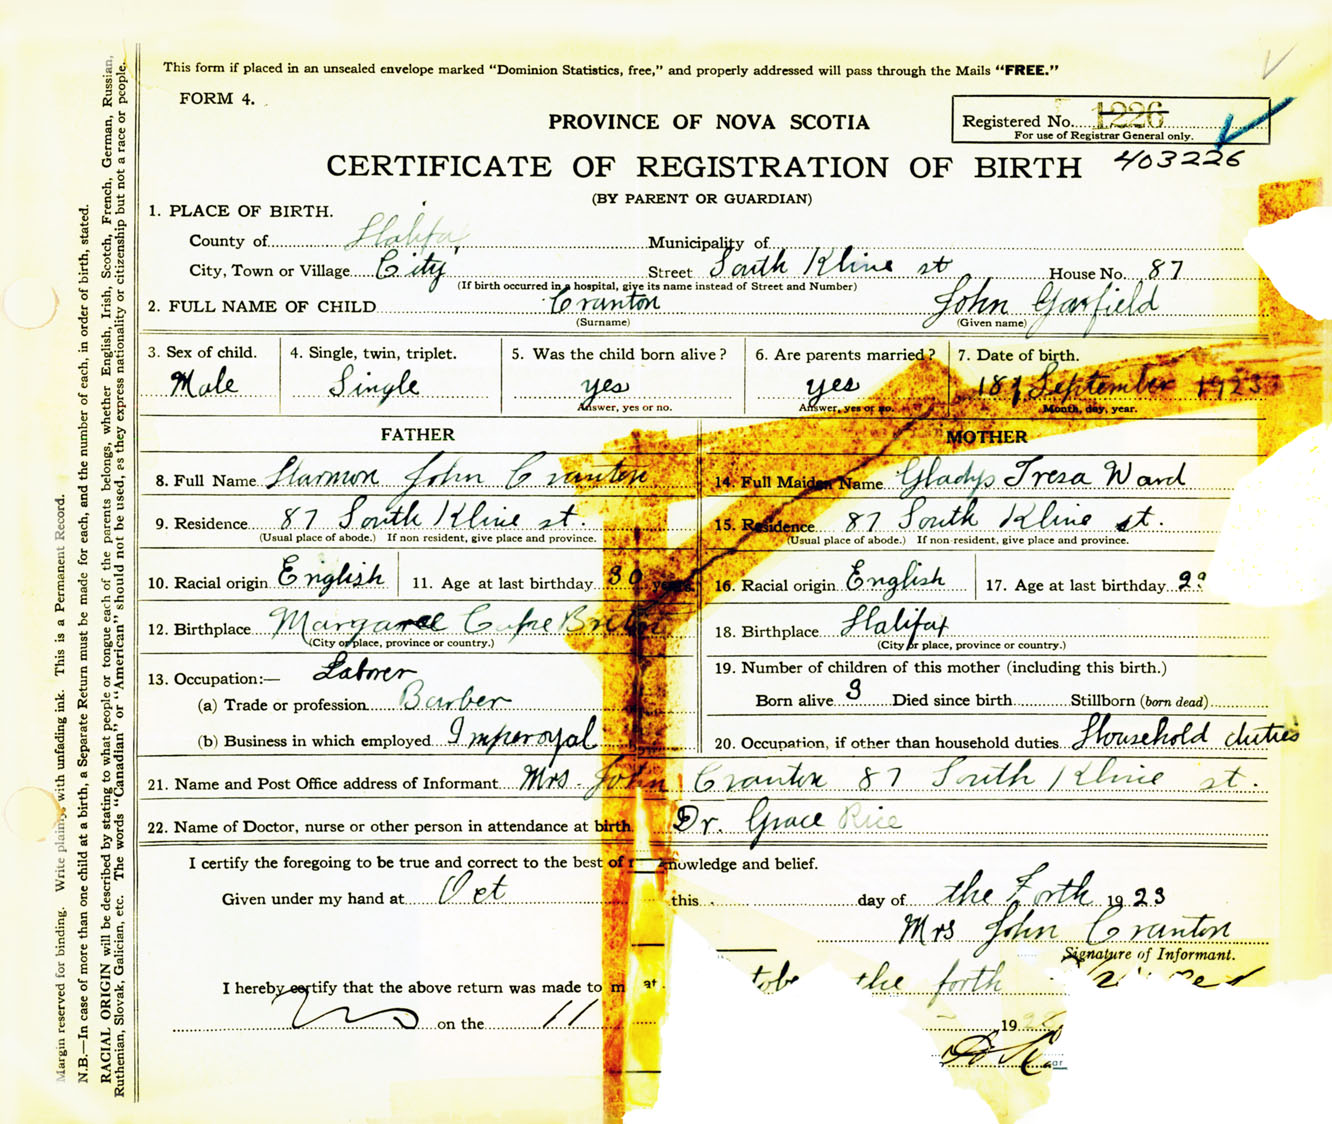 This form if placed in an unsealed envelope marked “Dominion Statistics, free,” and properly addressed will pass through the Mails “FREE.”
FORM 4.
Registered No. 1226
For use of Registrar General only.
PROVINCE OF NOVA SCOTIA
403226
CERTIFICATE OF REGISTRATION OF BIRTH
(BY PARENT OR GUARDIAN)
1. PLACE OF BIRTH.
County of Halifax Municipality of
City, Town or Village City Street South Kline st House No. 87
(If birth occurred in a hospital, give its name instead of Street and Number)
2. FULL NAME OF CHILD Cranton John Garfield
(Surname) (Given name)
3. Sex of child. 4. Single, twin, triplet. 5. Was the child born alive? 6. Are parents married? 7. Date of birth.
Male Single yes yes 18 September 1923
Answer, yes or no. Answer, yes or no. Month, day, year.
FATHER MOTHER
8. Full Name Harmon John Cranton 14. Full Maiden Name Gladys Tresa Ward
9. Residence 87 South Kline st. 15. Residence 87 South Kline st.
(Usual place of abode.) If non resident, give place and province. (Usual place of abode.) If non-resident, give place and province.
10. Racial origin English 11. Age at last birthday 30 years 16. Racial origin English 17. Age at last birthday
12. Birthplace Margaree Cape Breton 18. Birthplace Halifax
(City or place, province or country.) (City or place, province or country.)
13. Occupation:— Laborer 19. Number of children of this mother (including this birth.)
(a) Trade or profession Barber Born alive 3 Died since birth Stillborn (born dead)
(b) Business in which employed Imperoyal 20. Occupation, if other than household duties Household duties
21. Name and Post Office address of Informant Mrs. John Cranton 87 South Kline st.
22. Name of Doctor, nurse or other person in attendance at birth Dr. Grace Rice
I certify the foregoing to be true and correct to the best of knowledge and belief.
Given under my hand at Oct this day of the Forth 1923
Mrs John Cranton
Signature of Informant.
I hereby certify that the above return was made to m at tobe the forth
on the 11 19
Margin reserved for binding. Write plainly, with unfading ink. This is a Permanent Record.
N.B.—In case of more than one child at a birth, a Separate Return must be made for each, and the number of each, in order of birth, stated.
RACIAL ORIGIN will be described by stating to what people or tongue each of the parents belongs, whether English, Irish, Scotch, French, German, Russian,
Ruthenian, Slovak, Galician, etc. The words “Canadian” or “American” should not be used, as they express nationality or citizenship but not a race or people.